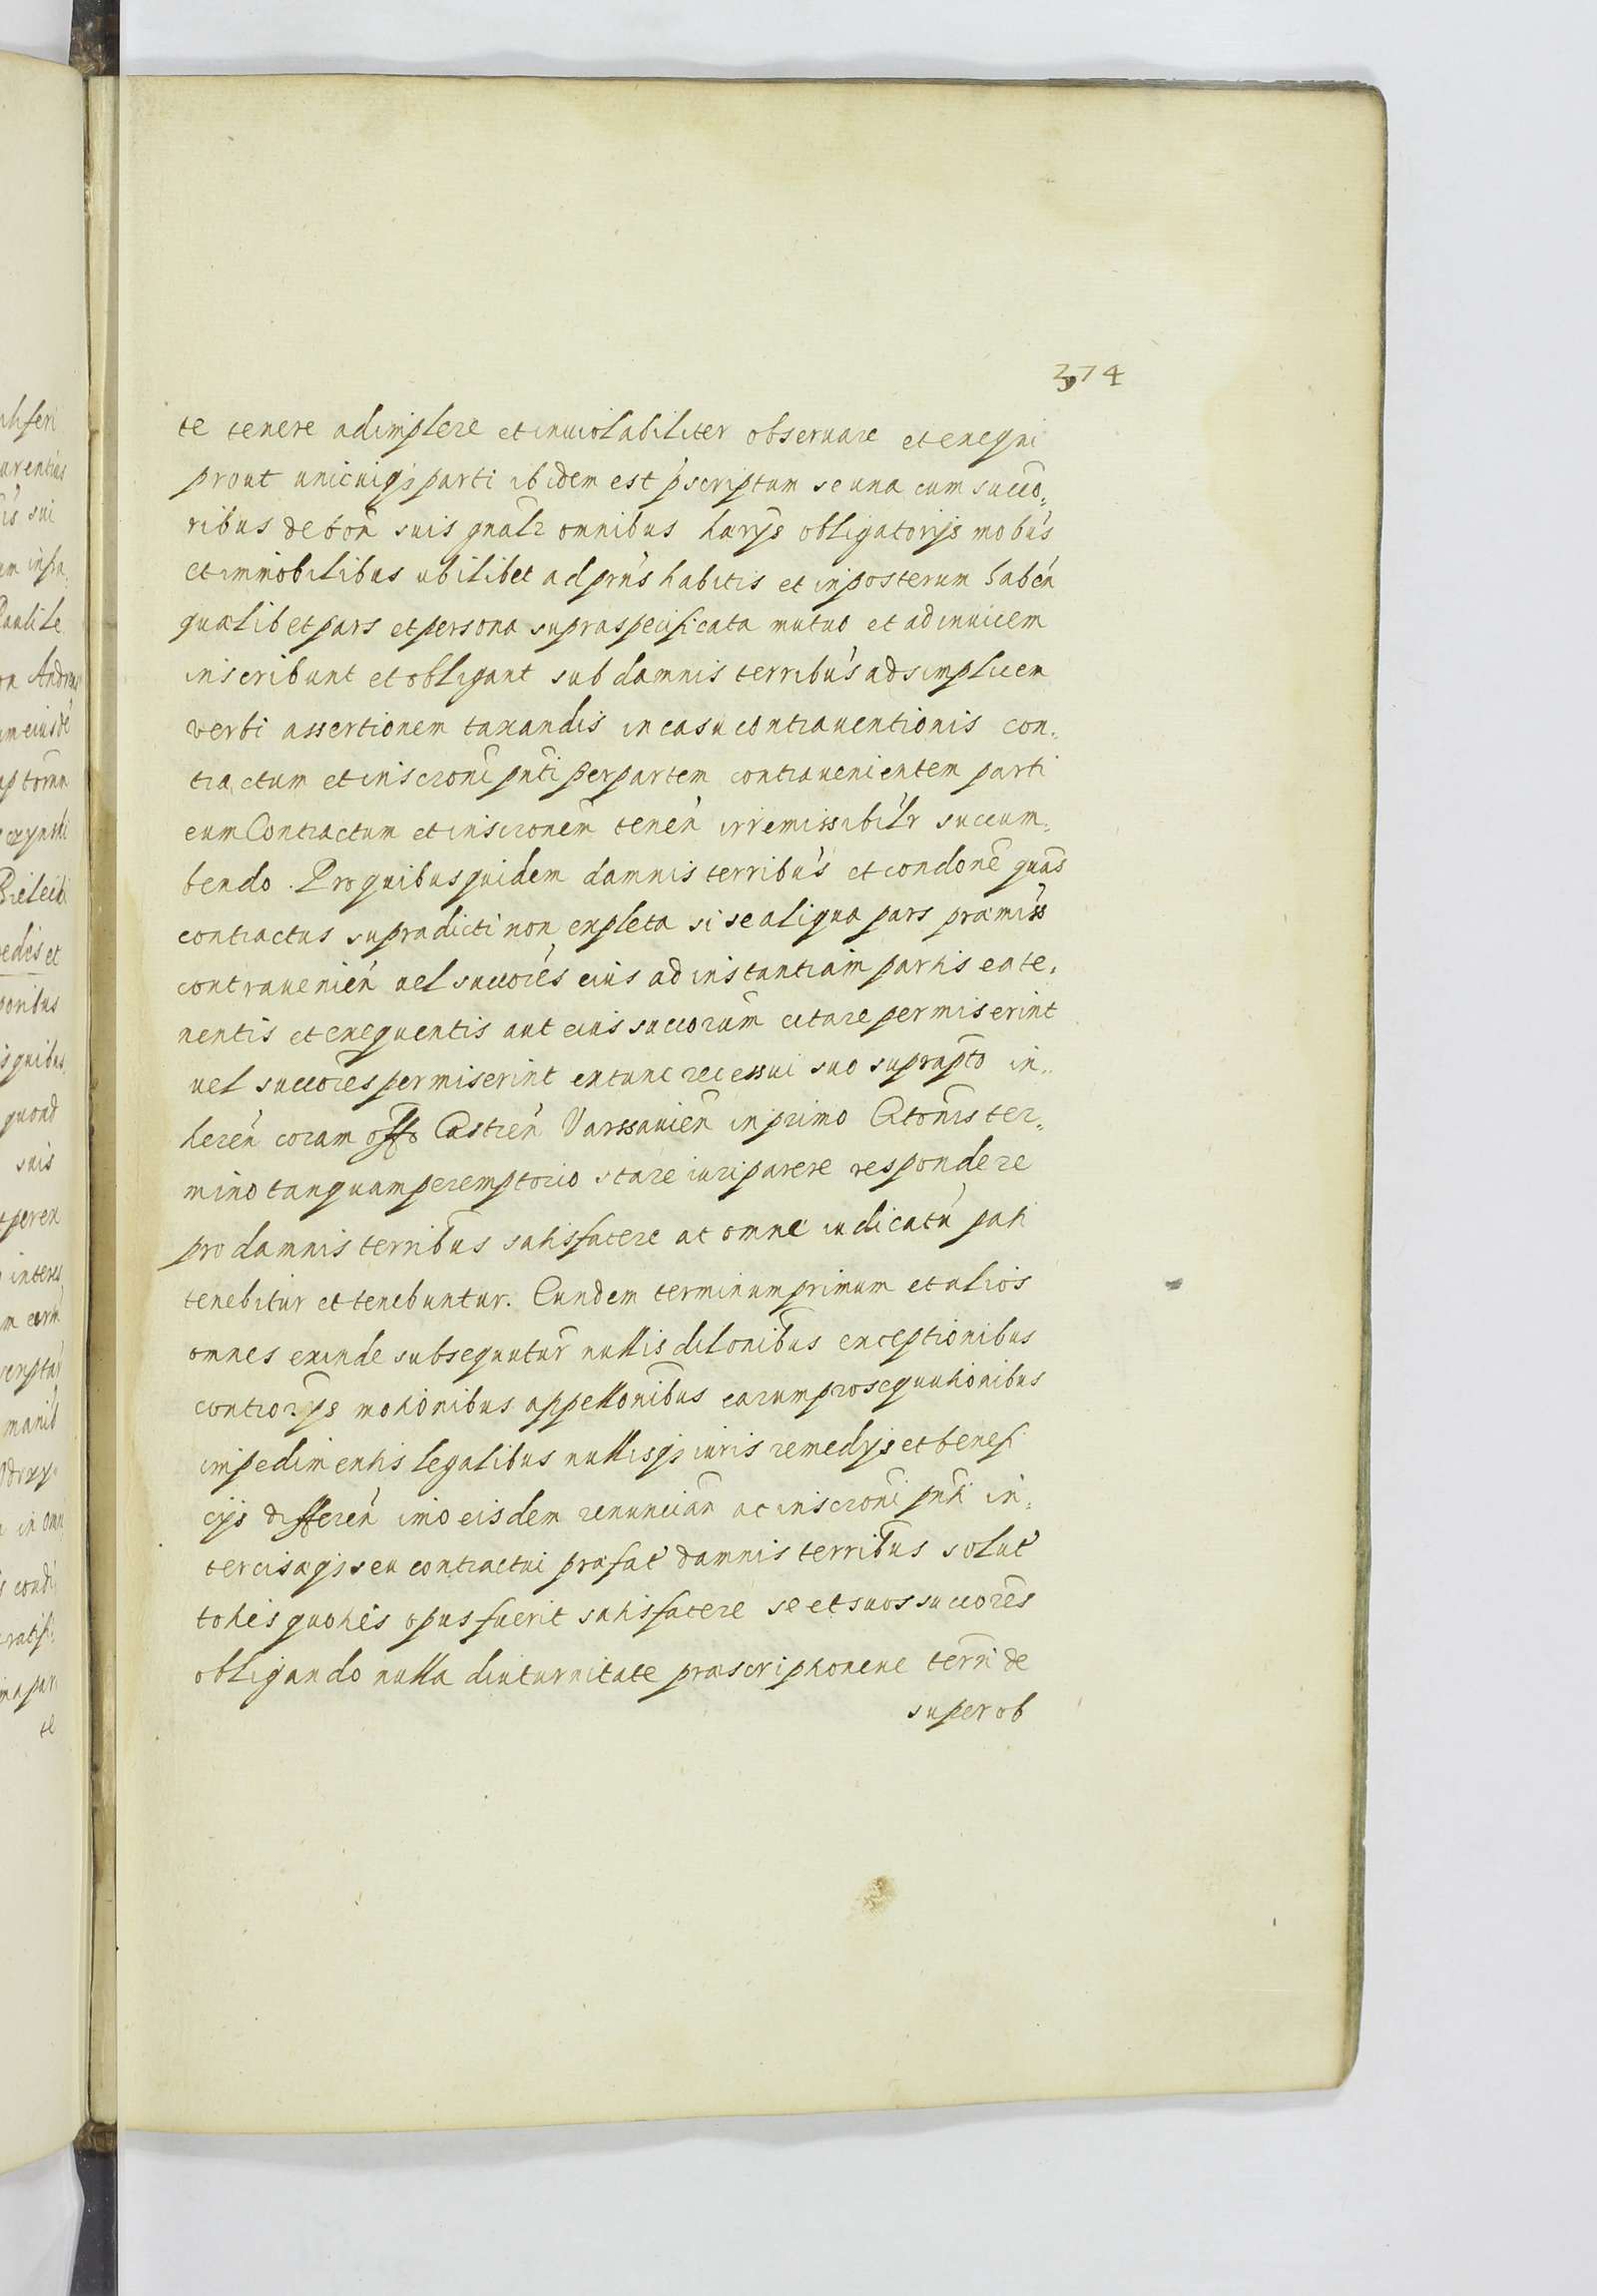 374
te tenere adimplere et inuiolabiliter obseruare et exequi
prout unicuiq́3 parti ibidem est p̃scriptum se una cum succo„
ribus de bon̄ suis gn̄alr omnibus harijs obligatorijs mobūs
et immobilibus ubilibet ad prn̄s habitis et inposterum habén
qualibet pars et persona supraspecificata mutuo et adinuicem
inscribunt et obligant sub damnis terribús ad simplicem
verbi assertionem taxandis in casu contrauentionis con„
tractum et inscroni pn̄ti per partem contrauenientem parti
eum Contractum et inscronem tenén irremissibilr succum„
bendo. Pro quibus quidem damnis terribús et condone quas
contractus supradicti non expleta si se aliqua pars præmiss
contrauenién uel succorés eius ad instantiam partis ea te„
nentis et exequentis aut eius succorum citare permiserint
uel succores permiserint extunc recessui suo suprapto in„
herén coram offo Castrén Varssauién in primo Citonis ter„
mino tanquam peremptorio stare iuri parere respondere
pro damnis terribus satisfacere ac omne iudicatú pati
tenebitur et tenebuntur. Eundem terminum primum et alios
omnes exinde subsequutur nullis dilonibus exceptionibus
controrijs motionibus appellonibus earum prosequutionibus
impedimentis legalibus nullisq3 iuris remedijs et benefi
cijs differén imo eisdem renuncian ac inscroni pnti in„
tercisaq3 seu contractui præfat damnis terribus solut
toties quoties opus fuerit satisfacere se et suos succores
obligando nulla diuturnitate præscriptionene terri de
super ob